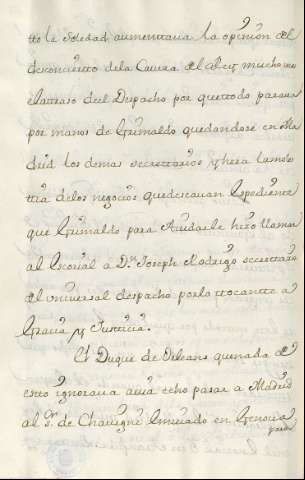 tto le Soledad aumenttava la opinion del
desconcierto dela Cavera del Rey mucho mas
el attraso del Despacho por quettodo pasava
por manos de Grimaldo quedandose en Ma
drid los demas secrettarios y hera la moles
ttia delos negocios quedeseavan Expediente
que Grimaldo para Aiudarle hizo llamar
al Escorial a Dn. Joseph Rodrigo secrettario
del universal despacho porlo ttocantte a
Gracia y Justticia.
El Duque de Orleans quenada de
estto ignorava avia echo pasar a Madrid
al Sr. de Chavigné Enviado en Genova